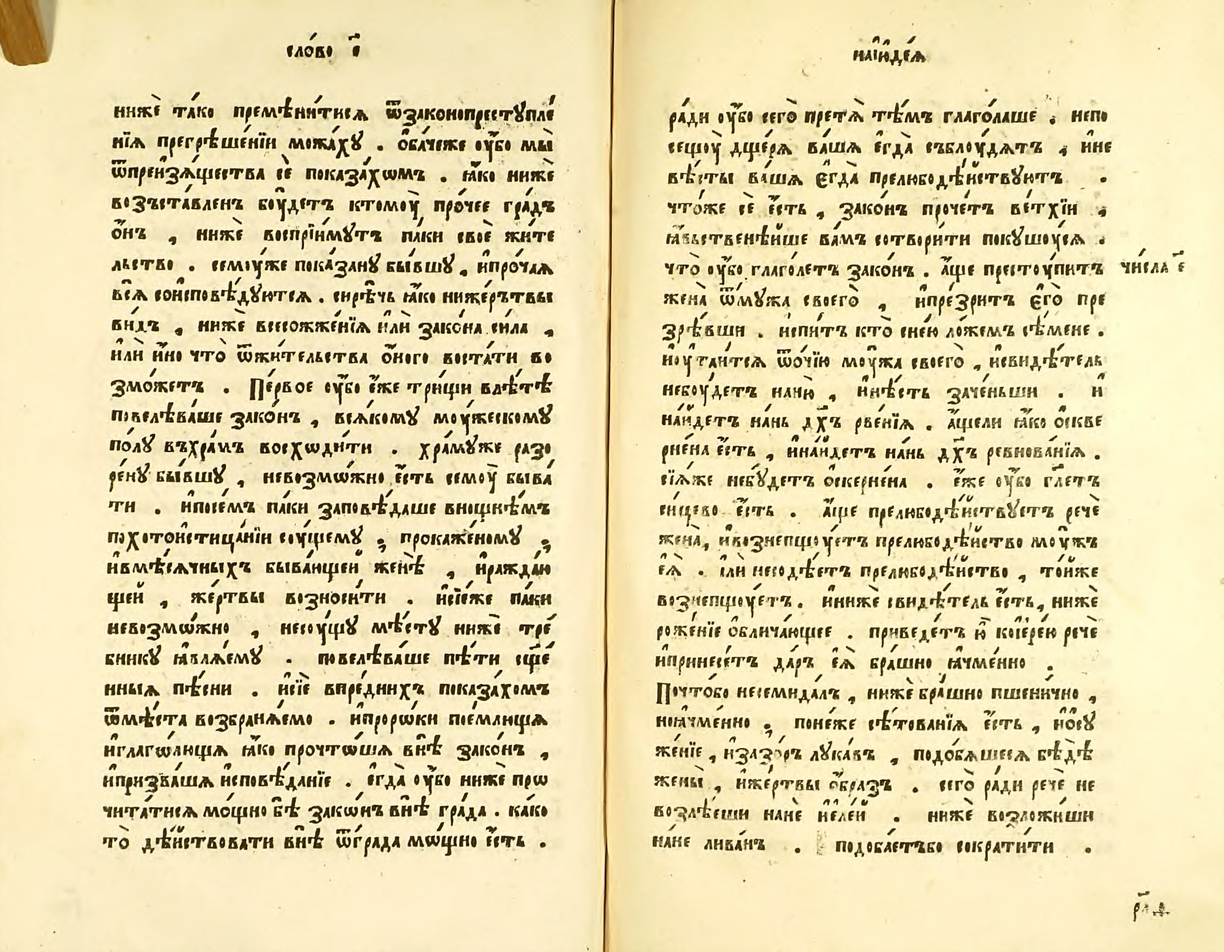 сло́во є҃
нижѐ та́ко премѣни́тисѧ ѿзаконопрестꙋпле
нїѧ прегрѣше́нїи можа́хꙋ . ѻба́чеже ѹ҆̀бо мы̀
ѿпреизѧ́щества сѐ показа́хѡмъ . ꙗ҆́ко нижѐ
возъста́вленъ бꙋ́детъ ктомоу̀ про́чее гра́дъ
о҆́нъ , нижѐ воспрїи́мꙋтъ па́ки своѐ жи́те
льство . семоу́же показа́нꙋ бы́вшꙋ , и҆про́чаѧ
всѧ̀ соисповѣ́дꙋютсѧ . сирѣ́чь ꙗ҆́ко нижеже́ртвы
ви́дъ , нижѐ всесожже́нїѧ и҆лѝ зако́на си́ла ,
и҆лѝ и҆́но что̀ ѿжи́тельства о҆́ного воста́ти во
змо́жетъ . Пе́рвое ѹ҆̀бо є҆́же три́щи влѣ́тѣ
повелѣва́ше зако́нъ , всѧ́комꙋ моу́жескомꙋ
по́лꙋ въхра́мъ восхѡди́ти . хра́мꙋже разо
ре́нꙋ бы́вшꙋ , невозмѡ́жно є҆́сть семоу̀ быва́
ти . и҆посе́мъ па́ки заповѣ́даше внощнѣ́мъ
похотоистица́нїи соу́щемꙋ , прокаже́номꙋ ,
и҆вмѣ́сѧчныхъ быва́ющеи женѣ̀ , и҆ражда́ю
щеи , же́ртвы возноси́ти . и҆сїе́же па́ки
невозмѡ́жно , несоу́щꙋ мѣ́стꙋ нижѐ тре́
бникꙋ ꙗ҆влѧ́емꙋ . повелѣва́ше пѣ́ти сщ҃е
нныѧ пѣ́сни . и҆сїѐ впре́днихъ показа́хомъ
ѿмѣ́ста возбранѧ́емо . и҆проро́ки пое́млищѧ
и҆глаго́лищѧ ꙗ҆́ко прочто́шѧ внѣ̀ зако́нъ ,
и҆призва́шѧ и҆сповѣ́данїе . є҆гда̀ ѹ҆̀бо нижѐ про
чита́тисѧ мо́щно бѣ̀ зако́нъ внѣ̀ гра́да . ка́ко
то̀ дѣ́иствовати внѣ̀ ѿгра́да мо́щно є҆́сть .
наїꙋде́ѧ
ра́ди ѹ҆̀бо сего̀ претѧ̀ тѣ́мъ глаго́лаше . непо
сещоу̀ дще́рѧ ва́шѧ є҆гда̀ съблоу́дѧтъ , и҆не
вѣ́сты ва́шѧ є҆гда̀ прелюбодѣ́иствꙋютъ .
что́же сѐ є҆́сть , зако́нъ проче́тъ ве́тхїи ,
ꙗ҆́вьственѣише ва́мъ сотвори́ти покꙋшоу́сѧ .
что̀ ѹ҆̀бо глаго́летъ зако́нъ . а҆́ще престоу́питъ
чи́сла є҃
жена̀ ѿмꙋ́жа своего̀ , и҆презри́тъ є҆го̀ пре
зрѣ́вши . и҆спи́тъ кто̀ сне́ю ло́жемъ сѣ́мене .
и҆оутаи́тсѧ ѿо́чїю моу́жа своего̀ , и҆свидѣ́тель
небоу́детъ на́ню , и҆нѣ́сть заче́ньши . и҆
на́идетъ на́нь дх҃ъ рве́нїѧ . а҆́щели ꙗ҆́ко ѻскве
рне́на є҆́сть , и҆на́идетъ на́нь дх҃ъ ревнова́нїѧ .
сїѧ́же небꙋ́детъ ѻскерне́на . є҆́же ѹ҆̀бо гл҃етъ
си́цево є҆́сть . а҆́ще прелюбодѣ́иствꙋетъ речѐ
жена̀ , и҆вознепщоу́етъ прелюбодѣ́иство моу́жъ
є҆ѧ̀ . и҆лѝ несодѣ́етъ прелюбодѣ́иство , то́иже
вознепщоу́етъ . и҆нижѐ свидѣ́тель є҆́сть , нижѐ
роже́нїе ѻблича́ющее . приведе́тъ ю҆̀ коїере́ю речѐ
и҆принесе́тъ да́ръ є҆ѧ̀ бра́шно ꙗ҆чме́нно .
Почто́бо несемида́лъ , нижѐ бра́шно пшени́чно ,
ноꙗ҆чме́нно , поне́же сѣ́тованїѧ є҆́сть , и҆ѻсꙋ
же́нїе , и҆зазо́ръ лꙋка́въ , подо́бѧшесѧ бѣдѣ̀
жены̀ , и҆же́ртвы ѻ҆́бразъ . сего̀ ра́ди речѐ не
возлѣ́еши на́не и҆є҆ле́и . нижѐ возложи́ши
на́не лива́нъ . подоба́етъбо сократи́ти .